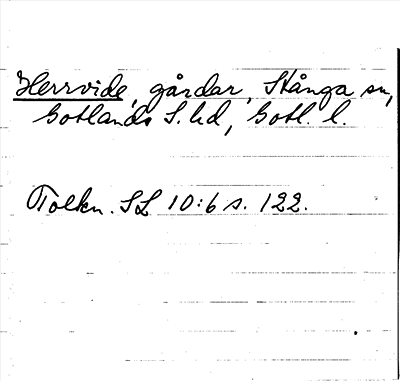 Herrvide, gårdar, Stånga sn,
Gotlands S. hd, Gotl. l.
Tolkn. SL 10:6 s. 122.